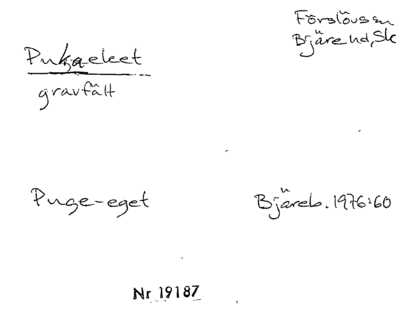 Förslövs sn
Bjäre hd, Sk
Pukaeket
gravfält
Puge-eget
Bjäreb. 1976:60
Nr 19187